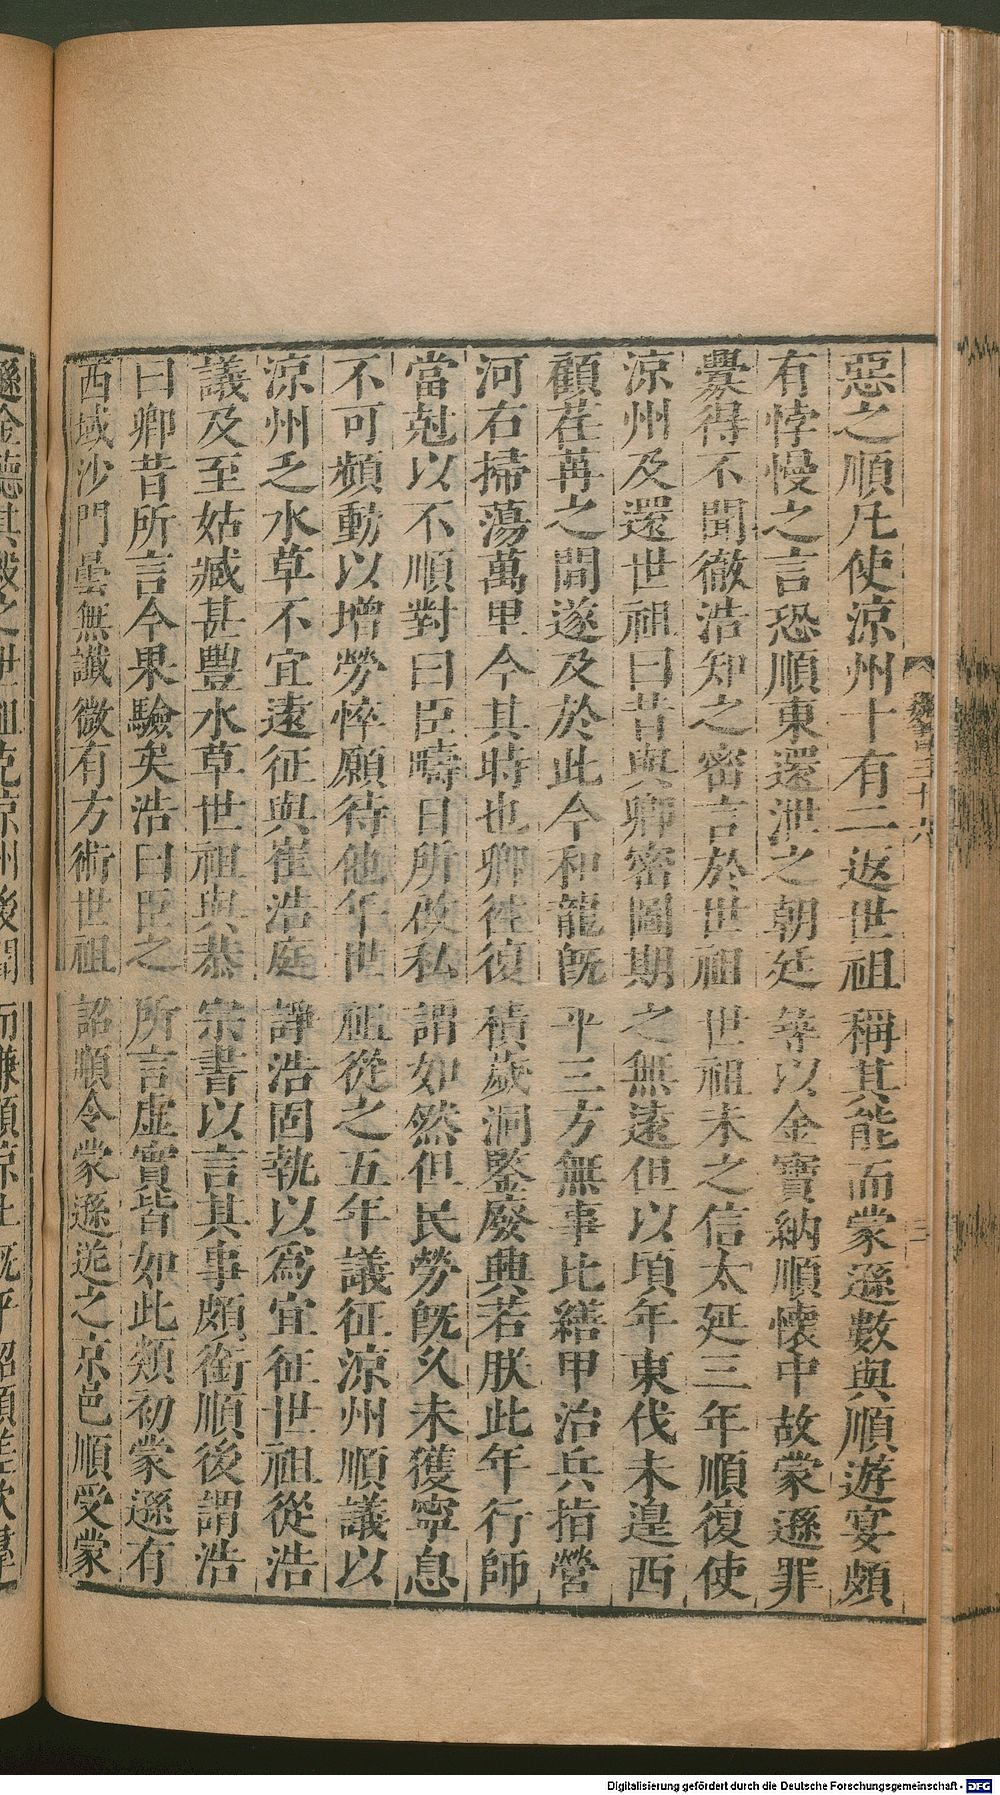 惡之順凡使涼州十有二返世祖稱其能而蒙遜數與順遊宴頗
有悖慢之言恐順東還泄之朝廷等以金寶納順懷中故蒙遜罪
釁得不聞徹浩知之密言於世祖世祖未之信太延三年順復使
涼州及還世祖曰昔與卿密圖期之無遠但以頃年東伐未遑西
顧荏苒之間遂及於此今和龍旣平三方無事比繕甲治兵指營
河右掃蕩萬里今其時也卿徃復積歲洞鑒廢興若朕此年行師
當尅以不順對曰臣疇日所啟私謂如然但民勞旣久未獲寧息
不可頻動以增勞悴願待他年世祖從之五年議征涼州順議以
涼州乏水草不宜遠征與崔浩庭諍浩固執以爲宜征世祖從浩
議及至姑臧甚豐水草世祖與恭宗書以言其事頗銜順後謂浩
曰卿昔所言今果驗矣浩曰臣之所言虛實皆如此類初蒙遜有
西域沙門曇無讖微有方術世祖詔順令蒙遜送之京邑順受蒙
遜金聽其殺之世祖克涼州後聞而嫌順涼土旣平詔順差次羣
魏書三十六
三
Digitalisierung gefördert durch die Deutsche Forschungsgemeinschaft - DFG